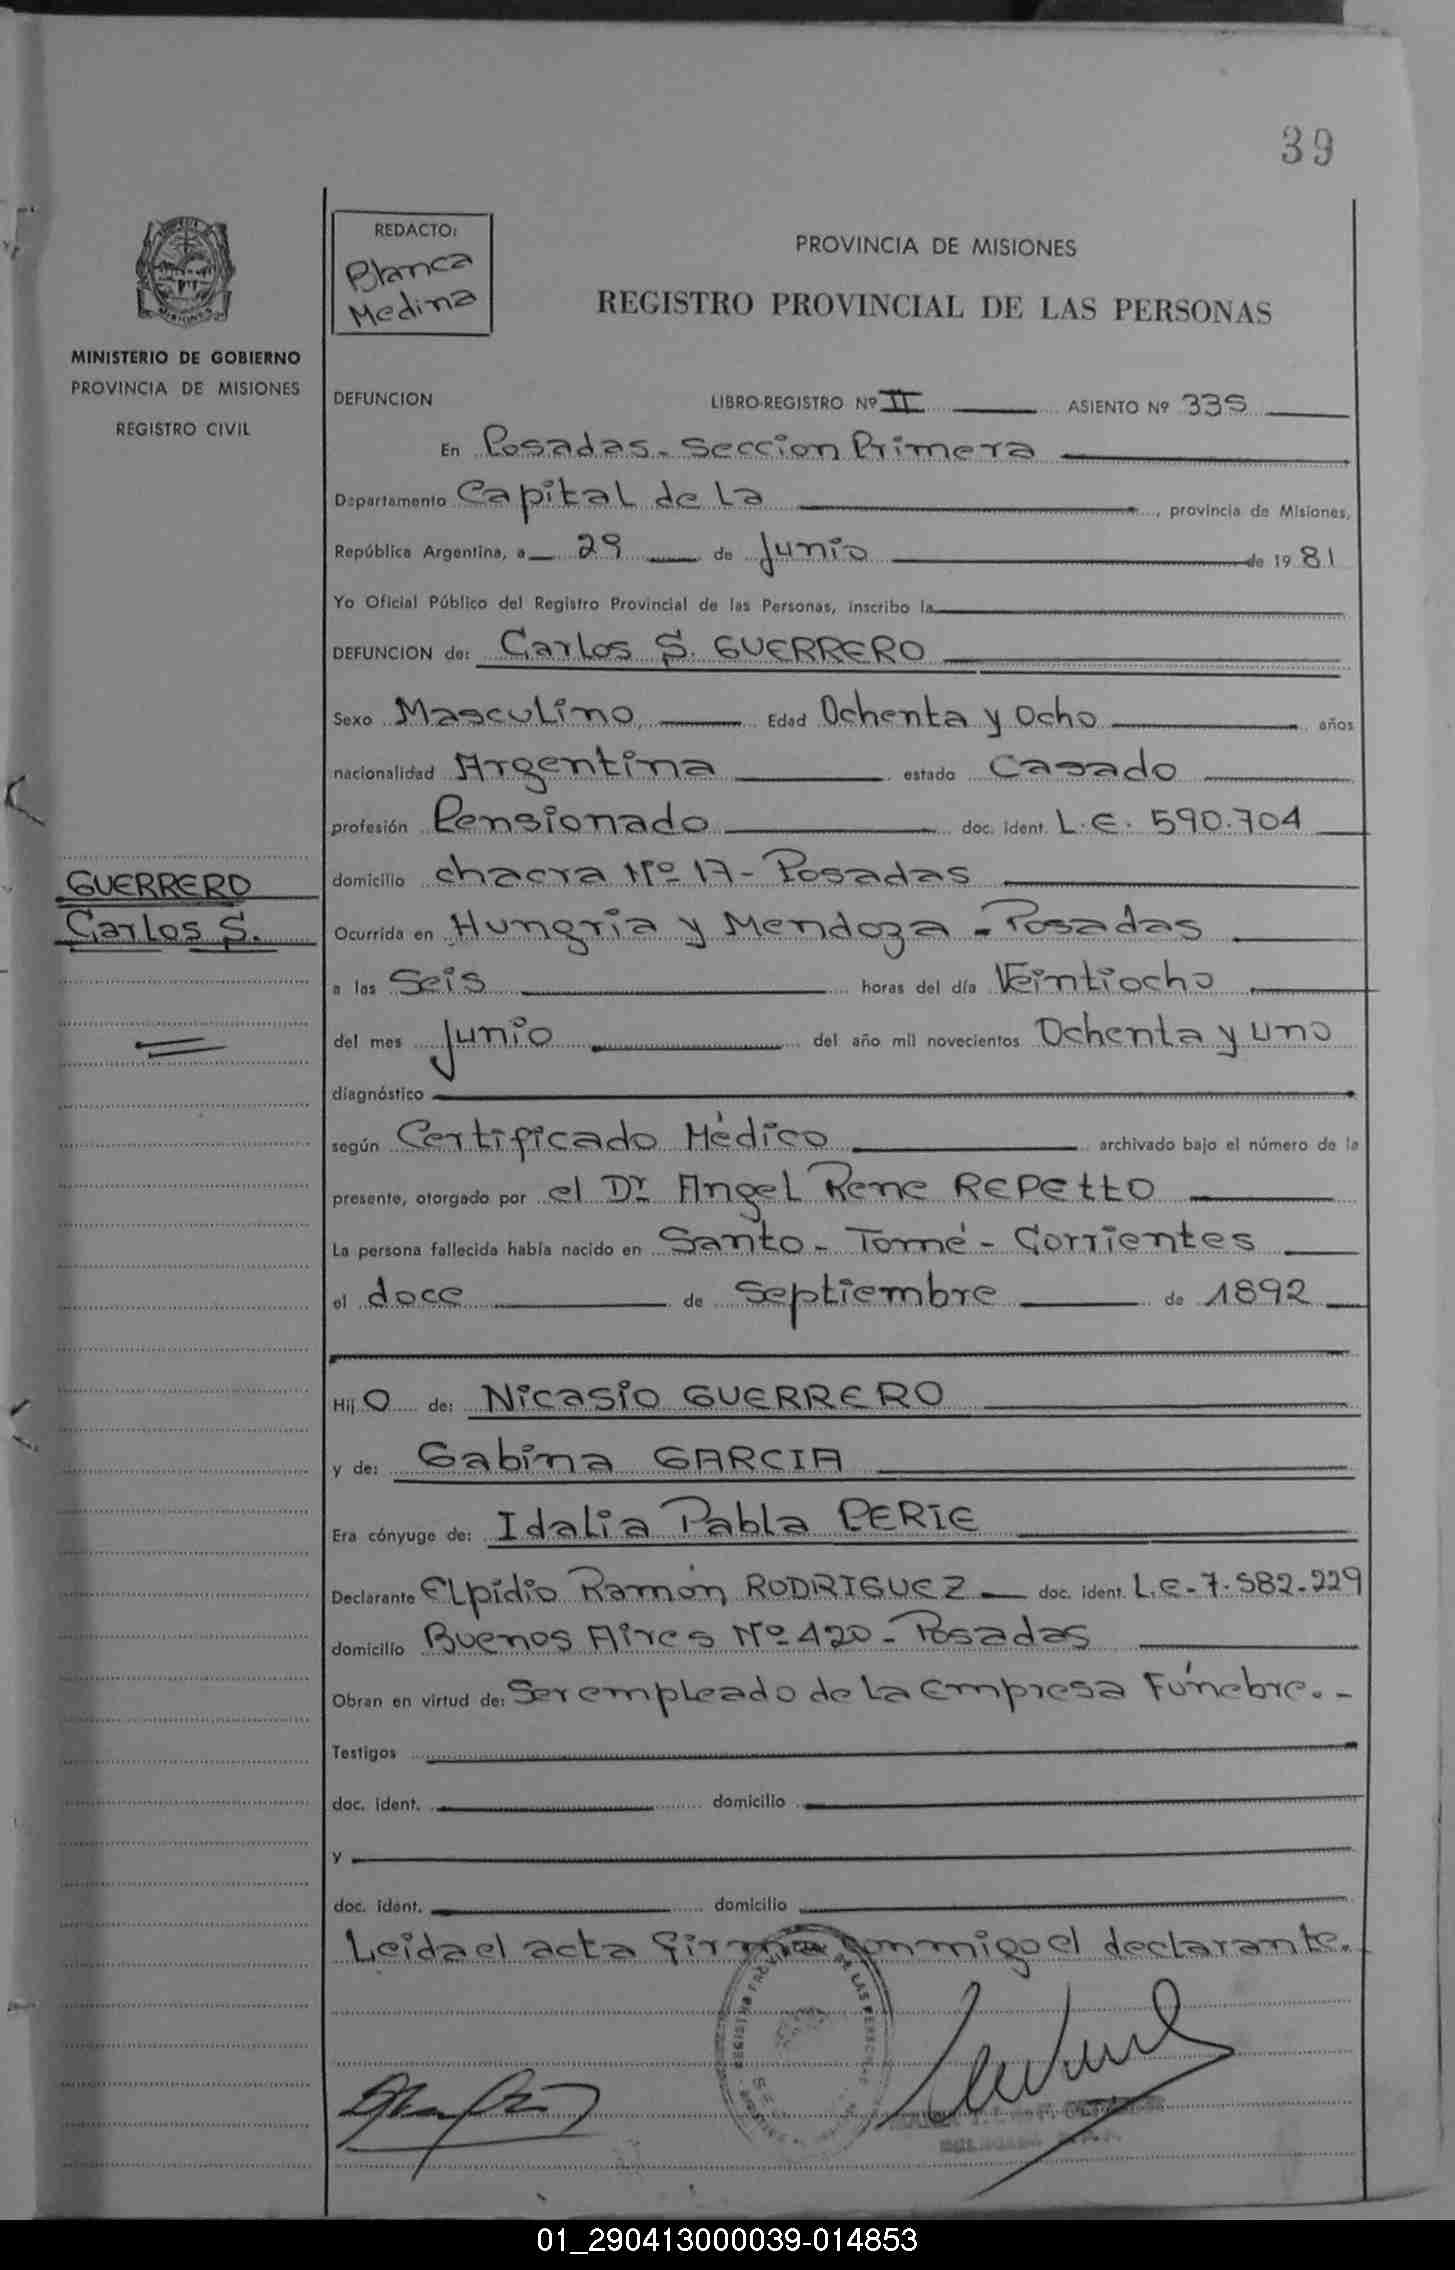 39
REDACTO:
Blanca
Medina
PROVINCIA DE MISIONES
REGISTRO PROVINCIAL DE LAS PERSONAS
MINISTERIO DE GOBIERNO
PROVINCIA DE MISIONES
REGISTRO CIVIL
DEFUNCION LIBRO-REGISTRO Nº II ASIENTO Nº 335
En Posadas - Seccion Primera
Departamento Capital de La , provincia de Misiones,
República Argentina, a 29 de Junio de 19 81
Yo Oficial Público del Registro Provincial de las Personas, inscribo la
DEFUNCION de: Carlos S. GUERRERO
Sexo Masculino, Edad Ochenta y Ocho años
nacionalidad Argentina estado Casado
profesión Pensionado doc. ident. L.E. 590.704
GUERRERO
Carlos S.
domicilio chacra Nº 17 - Posadas
Ocurrida en Hungria y Mendoza - Posadas
a las Seis horas del día Veintiocho
del mes Junio del año mil novecientos Ochenta y uno
diagnóstico
según Certificado Médico archivado bajo el número de la
presente, otorgado por el Dr Angel Rene REPETTO
La persona fallecida había nacido en Santo - Tomé - Corrientes
el doce de Septiembre de 1892
Hij O de: Nicasio GUERRERO
y de: Gabina GARCIA
Era cónyuge de: Idalia Pabla PERIE
Declarante Elpidio Ramón RODRIGUEZ doc. ident. L.E - 7.582.229
domicilio Buenos Aires Nº 420 - Posadas
Obran en virtud de: Ser empleado de la empresa Fúnebre. -
Testigos
doc. ident. domicilio
y
doc. ident. domicilio
Leida el acta firma conmigo el declarante.
01_290413000039-014853